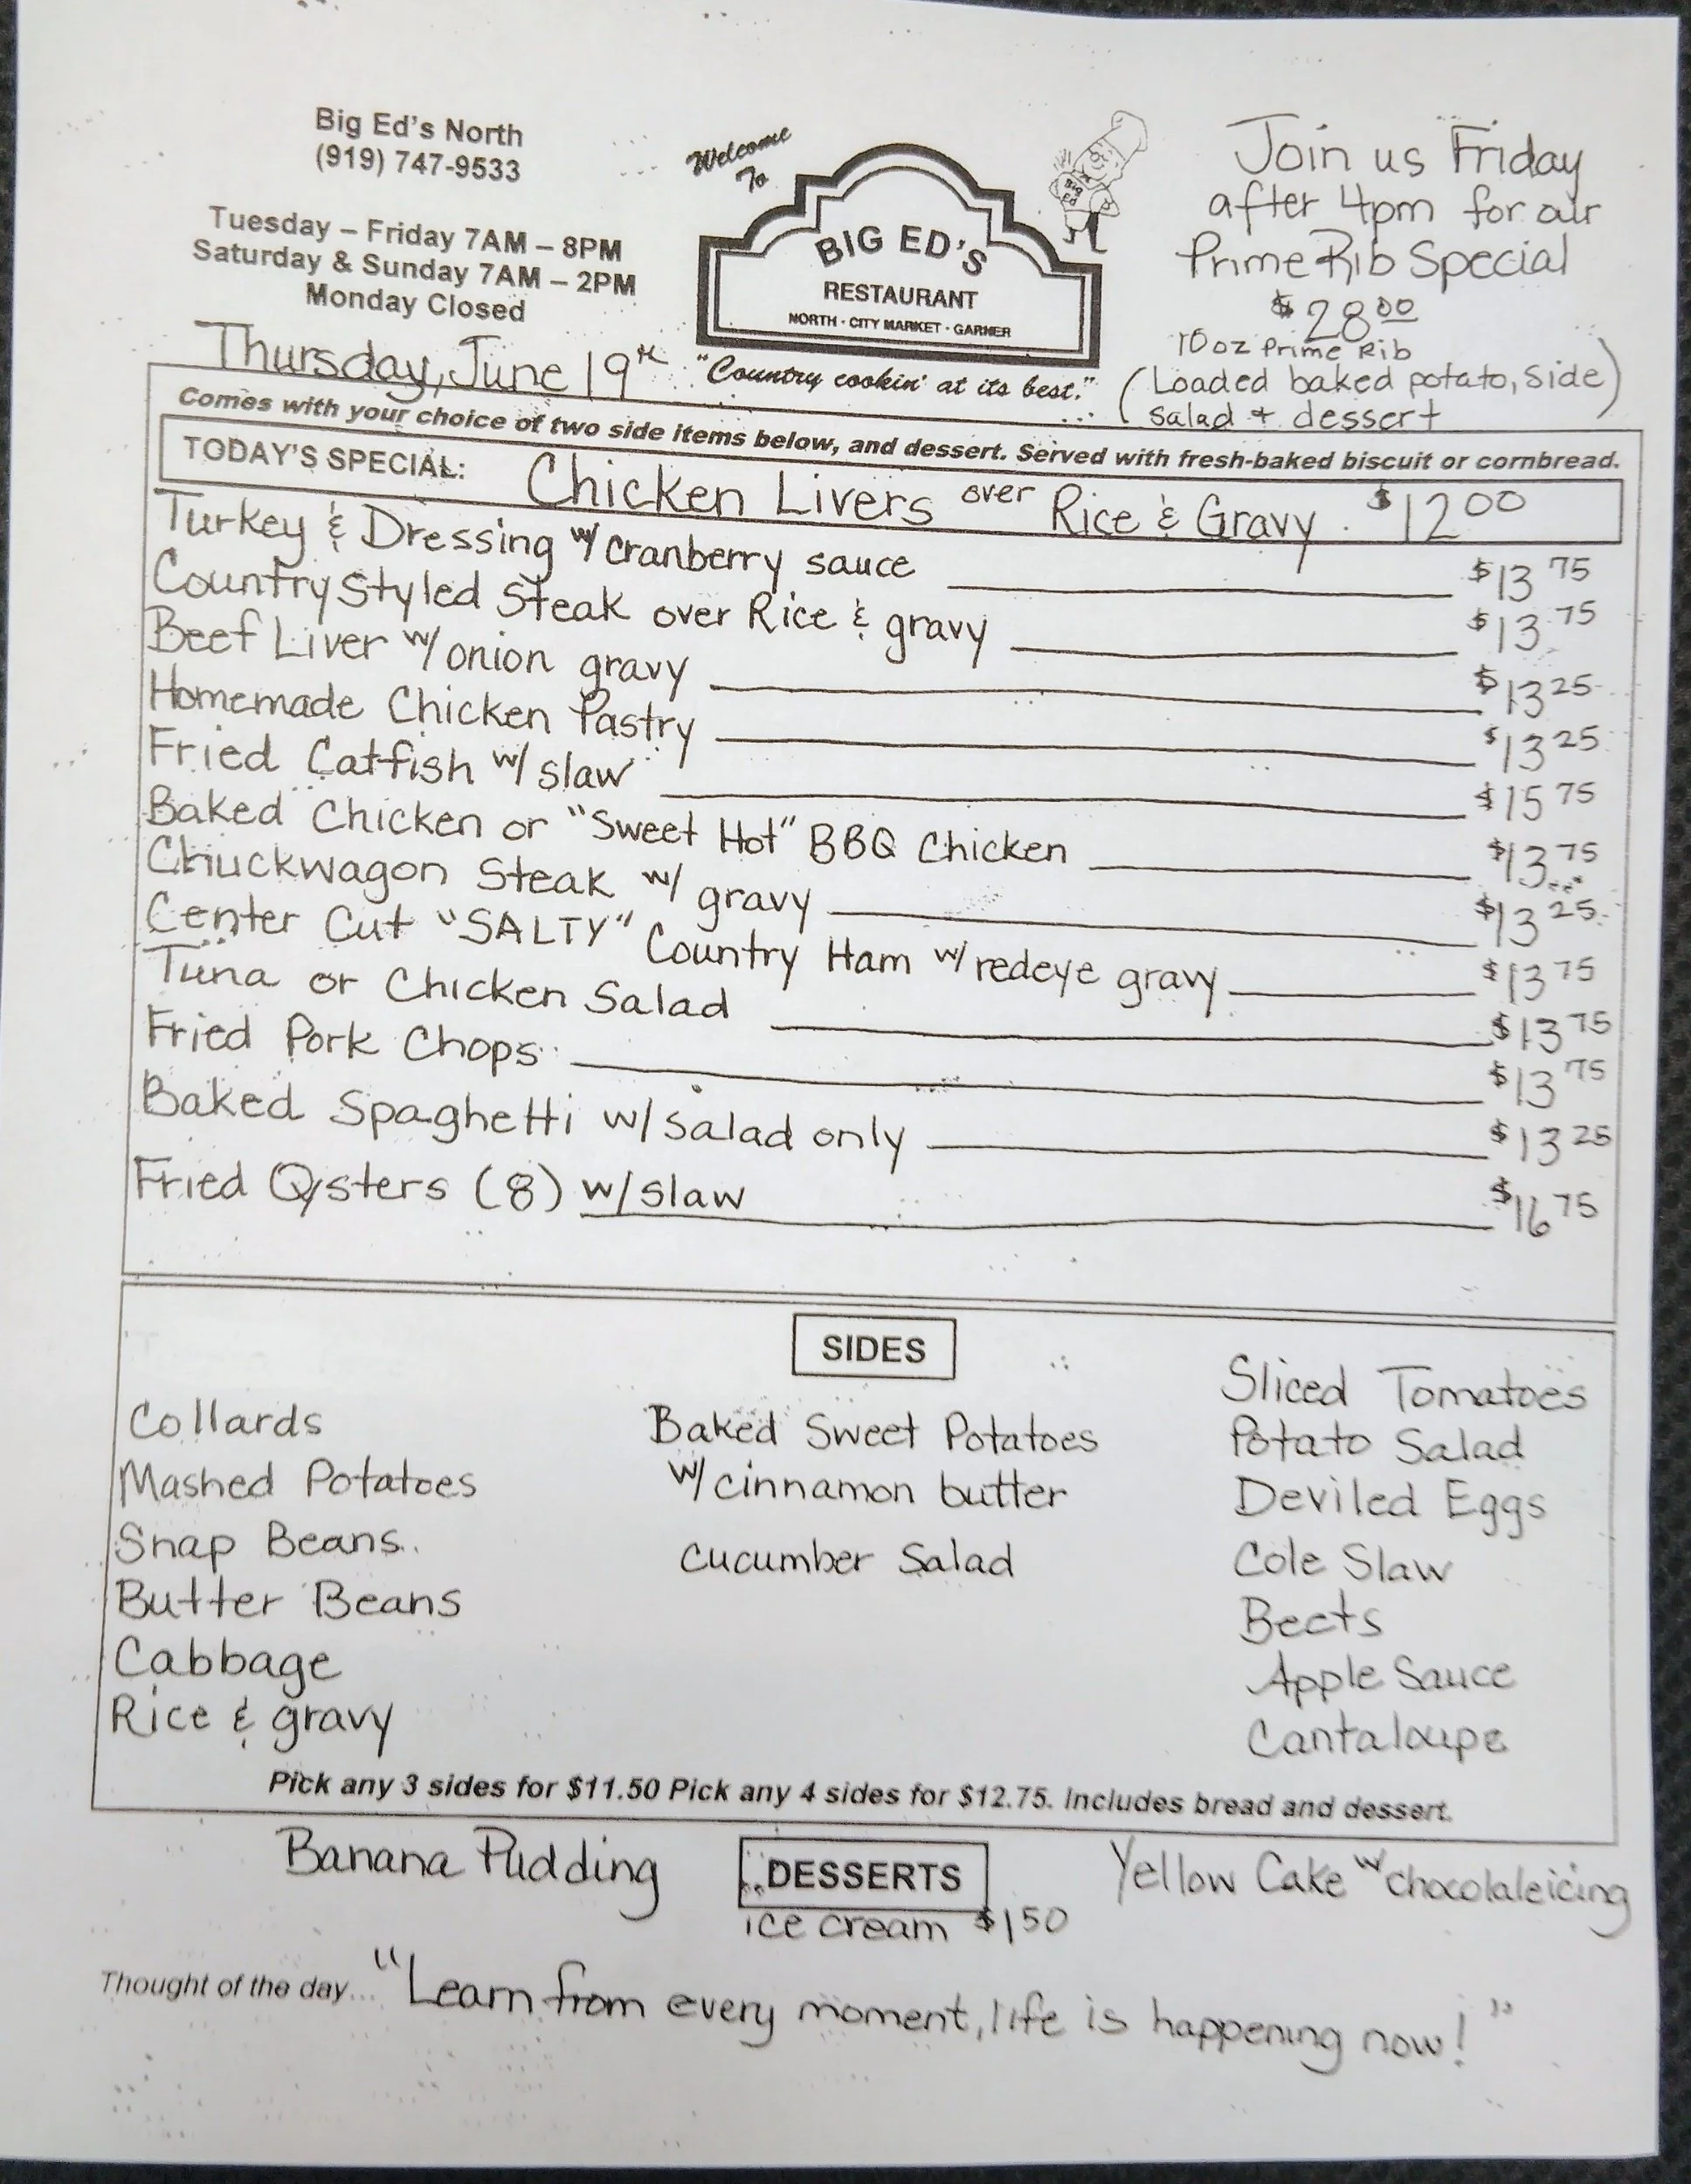 Big Ed's North
(919) 747-9533
Tuesday – Friday 7AM – 8PM
Saturday & Sunday 7AM – 2PM
Monday Closed
Thursday, June 19th
Welcome
To
Big Ed
BIG ED'S
RESTAURANT
NORTH · CITY MARKET · GARNER
"Country cookin' at its best."
Join us Friday
after 4pm for our
Prime Rib Special
$28.00
10oz Prime Rib
(Loaded baked potato, Side)
Salad & dessert
Comes with your choice of two side items below, and dessert. Served with fresh-baked biscuit or cornbread.
TODAY'S SPECIAL: Chicken Livers over Rice & Gravy. $12.00
Turkey & Dressing w/ cranberry sauce $13.75
Country Styled Steak over Rice & gravy $13.75
Beef Liver w/ onion gravy $13.25
Homemade Chicken Pastry $13.25
Fried Catfish w/ slaw $15.75
Baked Chicken or "Sweet Hot" BBQ Chicken $13.75
Chuckwagon Steak w/ gravy $13.25
Center Cut "SALTY" Country Ham w/ redeye gravy $13.75
Tuna or Chicken Salad $13.75
Fried Pork Chops $13.75
Baked Spaghetti w/ salad only $13.25
Fried Oysters (8) w/ slaw $16.75
SIDES
Collards
Mashed Potatoes
Snap Beans
Butter Beans
Cabbage
Rice & gravy
Baked Sweet Potatoes
w/ cinnamon butter
Cucumber Salad
Sliced Tomatoes
Potato Salad
Deviled Eggs
Cole Slaw
Beets
Apple Sauce
Cantaloupe
Pick any 3 sides for $11.50 Pick any 4 sides for $12.75. Includes bread and dessert.
Banana Pudding
DESSERTS
ice cream $1.50
Yellow Cake w/ chocolate icing
Thought of the day... "Learn from every moment, life is happening now!"